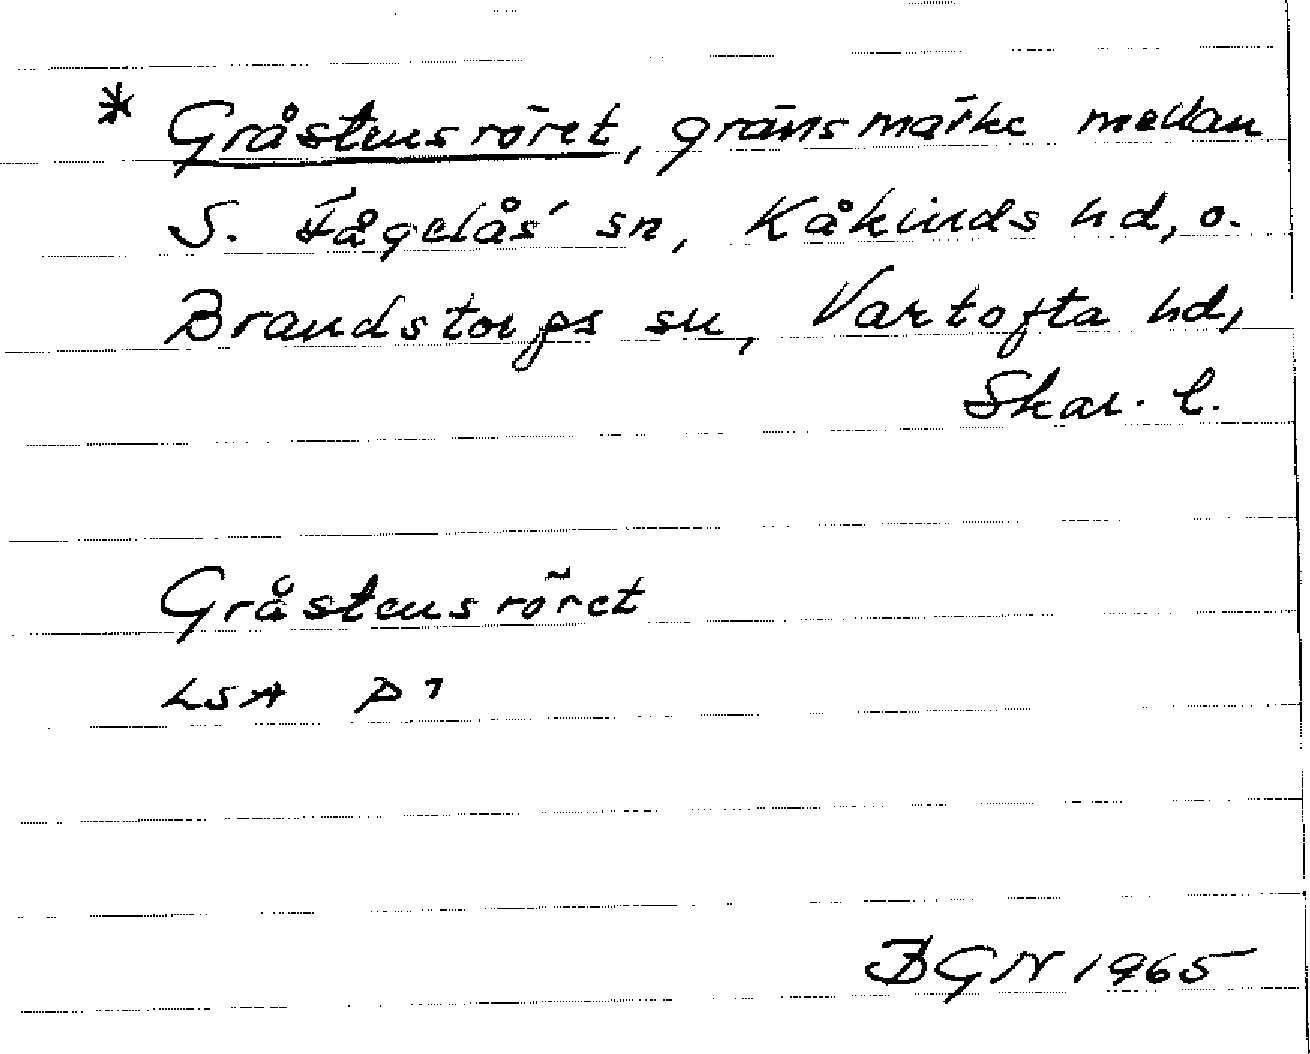 * Gråstensröret, gränsmärke mellan
S. Fågelås' sn, Kåkinds hd, o.
Brandstorps sn, Vartofta hd,
Skar. l.
Gråstensröret
LSA P 7
BGN 1965